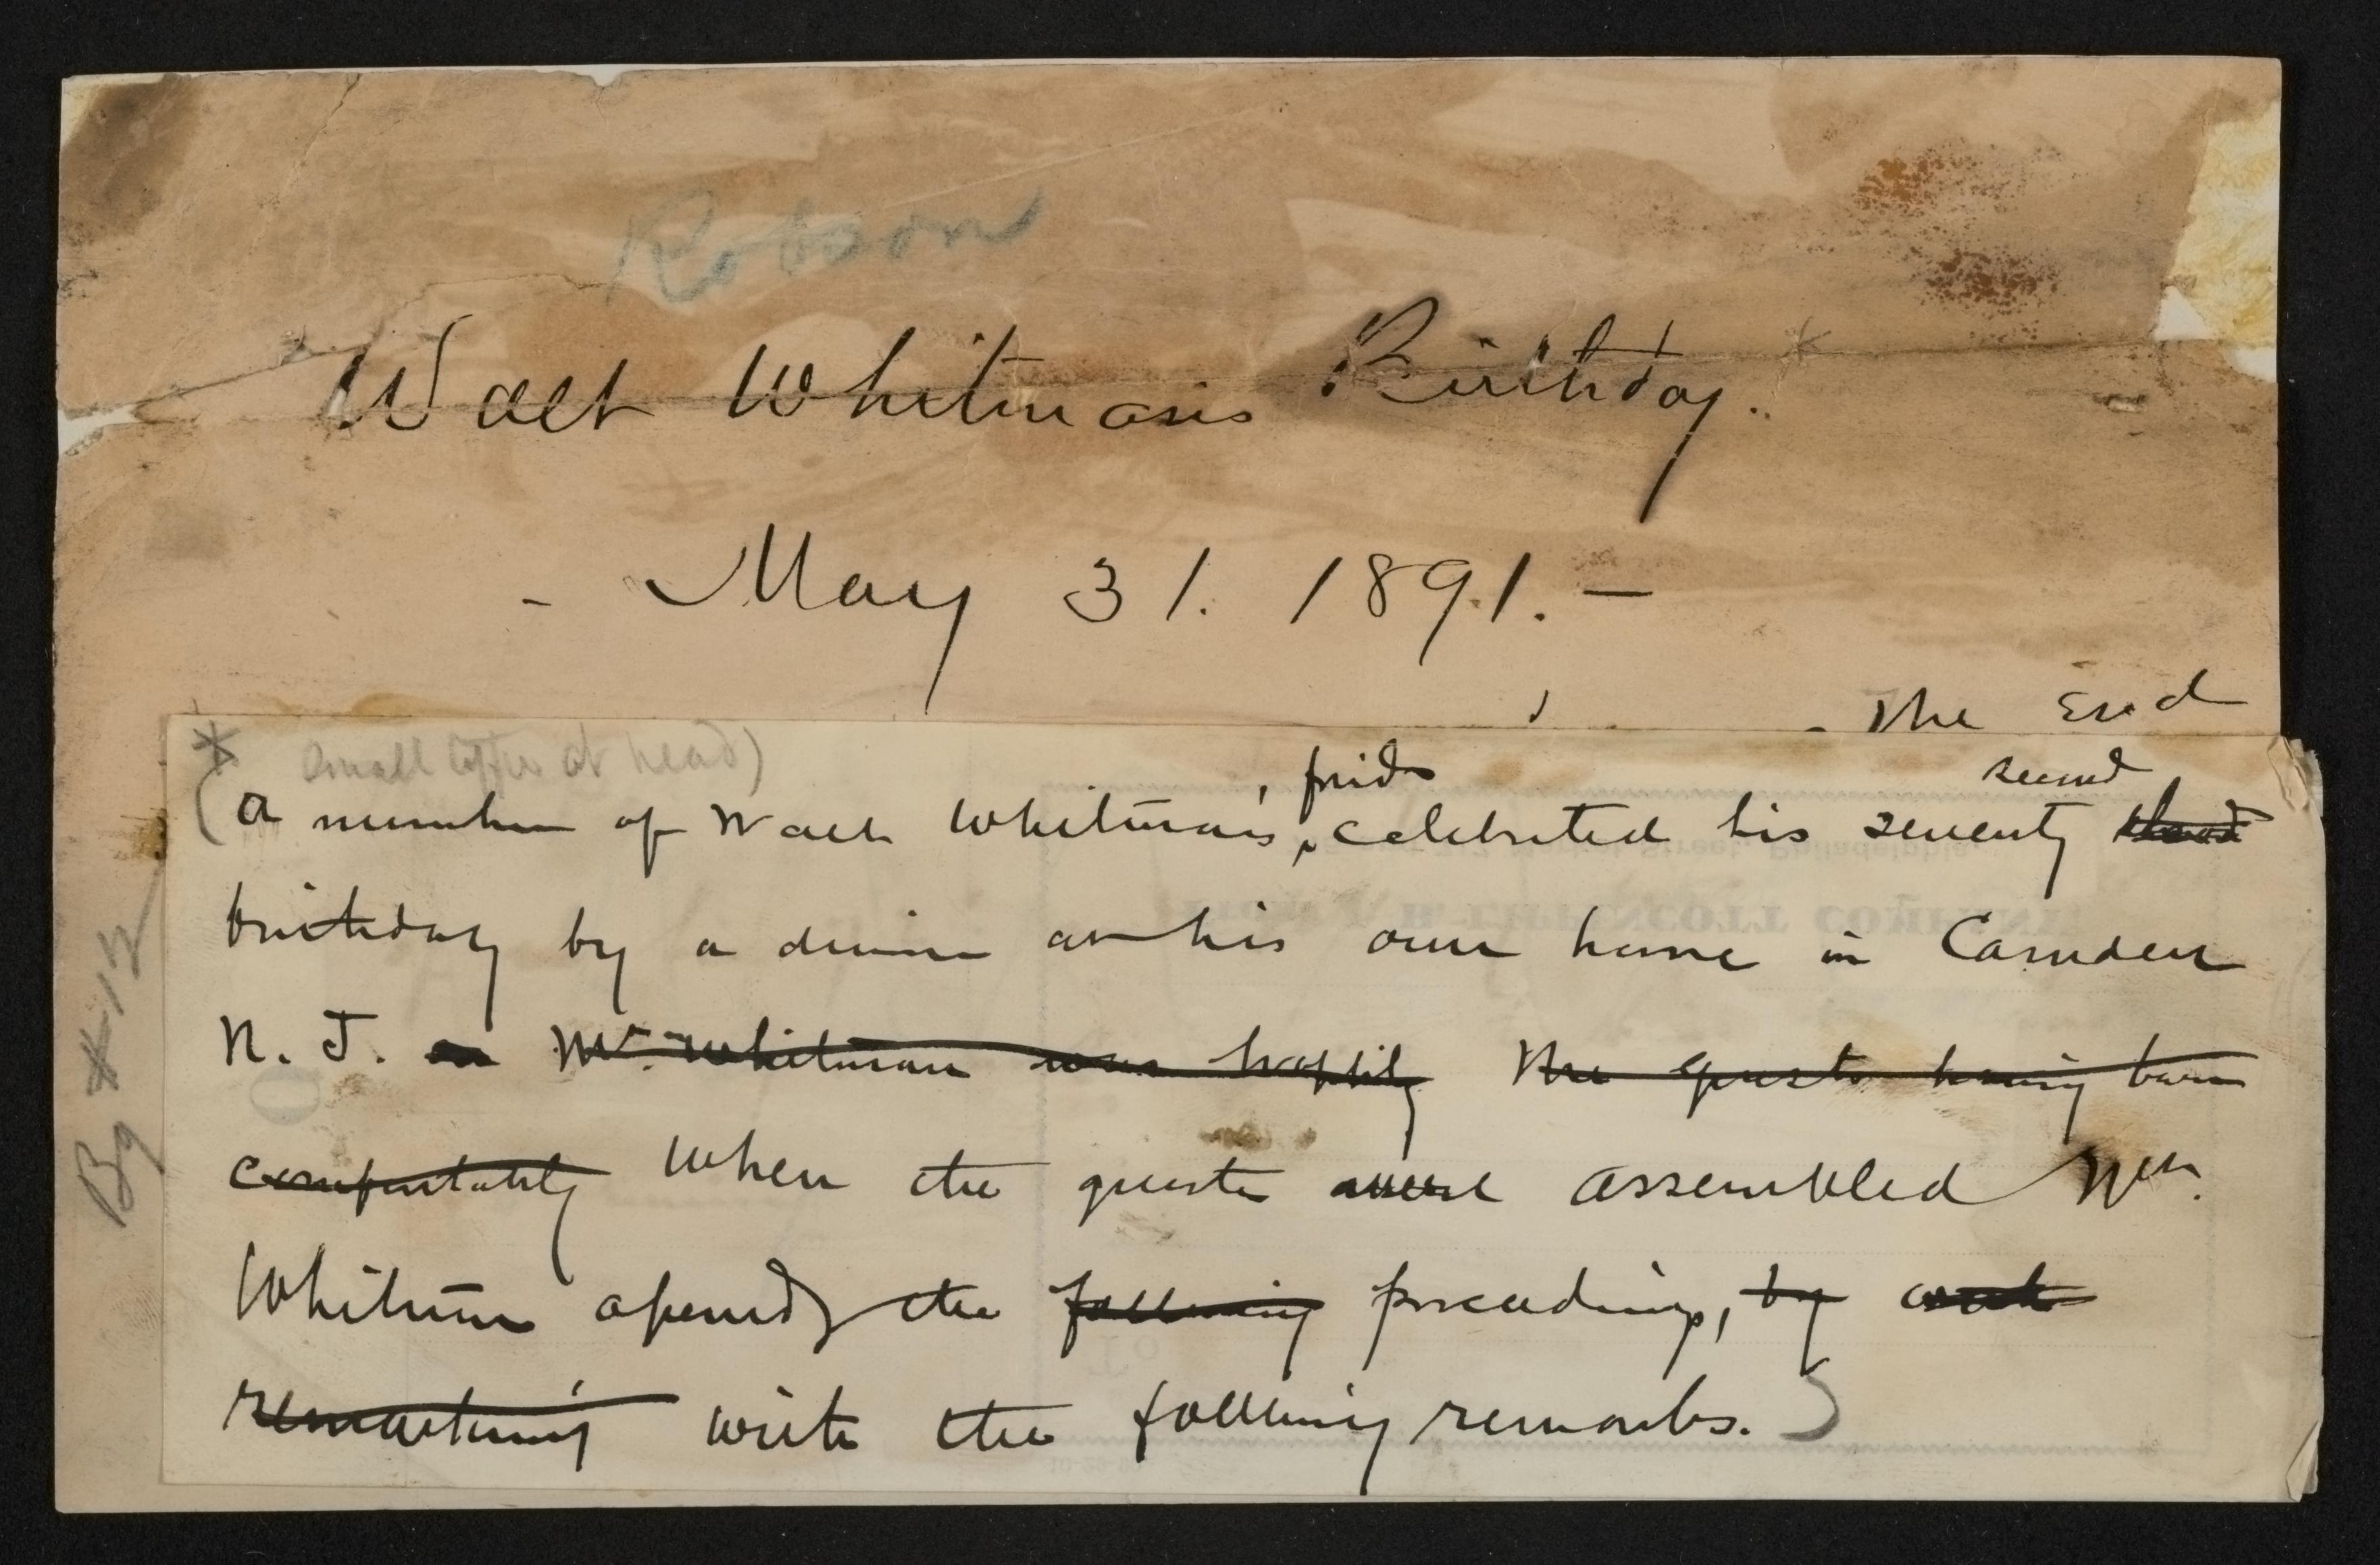 Robson
Walt Whitman's Birthday.
- May 31. 1891. -
The End
* small type at head)
friends second
(A number of Walt Whitman's, celebrated his seventy third
birthday by a dinner at his own home in Camden
N. J. Mr. Whitman was happily The guests having been
comfortably When the guests were assembled Mr.
Whitman opened the following proceedings, by
remarking with the following remarks.)